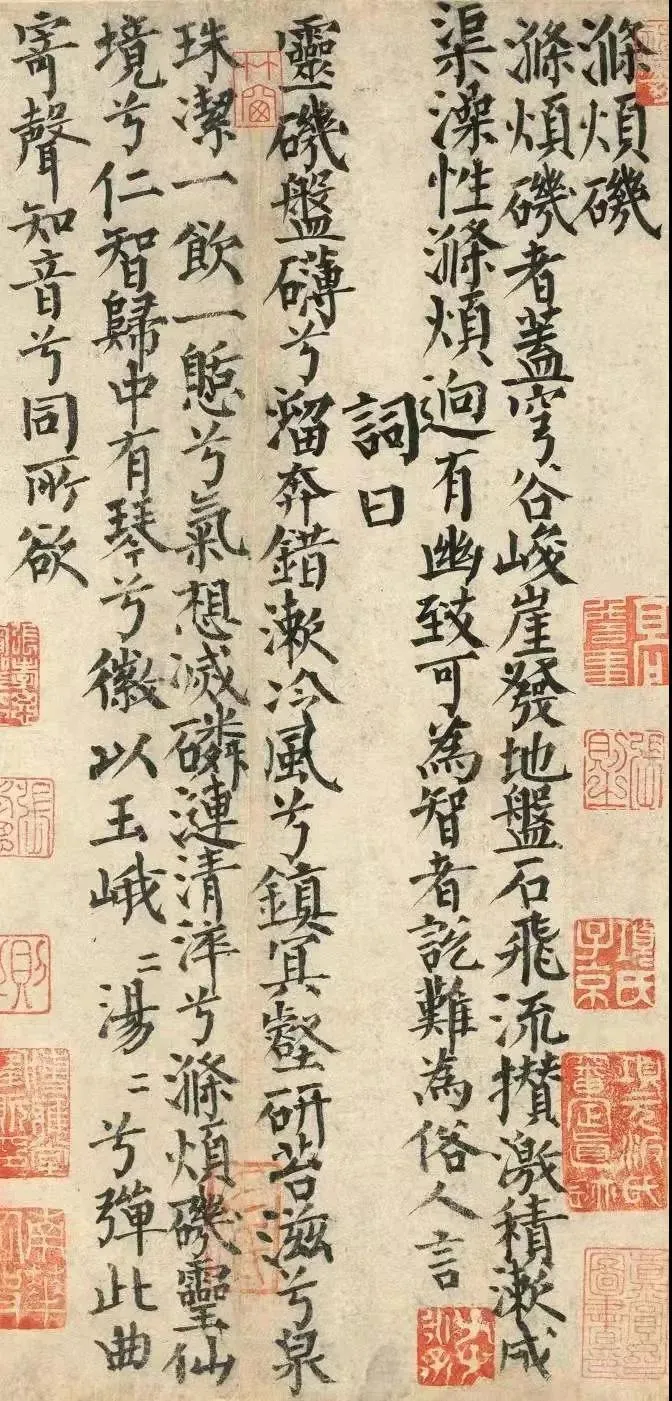 滌煩磯
滌煩磯者蓋穹谷峻崖發地盤石飛流攢激積漱成
渠澡性滌煩逈有幽致可為智者訖難為俗人言
詞曰
靈磯盤礴兮溜奔錯漱冷風兮鎮冥壑研苔滋兮泉
珠潔一飲一憩兮氣想滅磷漣清泙兮滌煩磯靈仙
境兮仁智歸中有琴兮徽以玉峨〻湯〻兮彈此曲
寄聲知音兮同所欲
竹窗
項氏子京